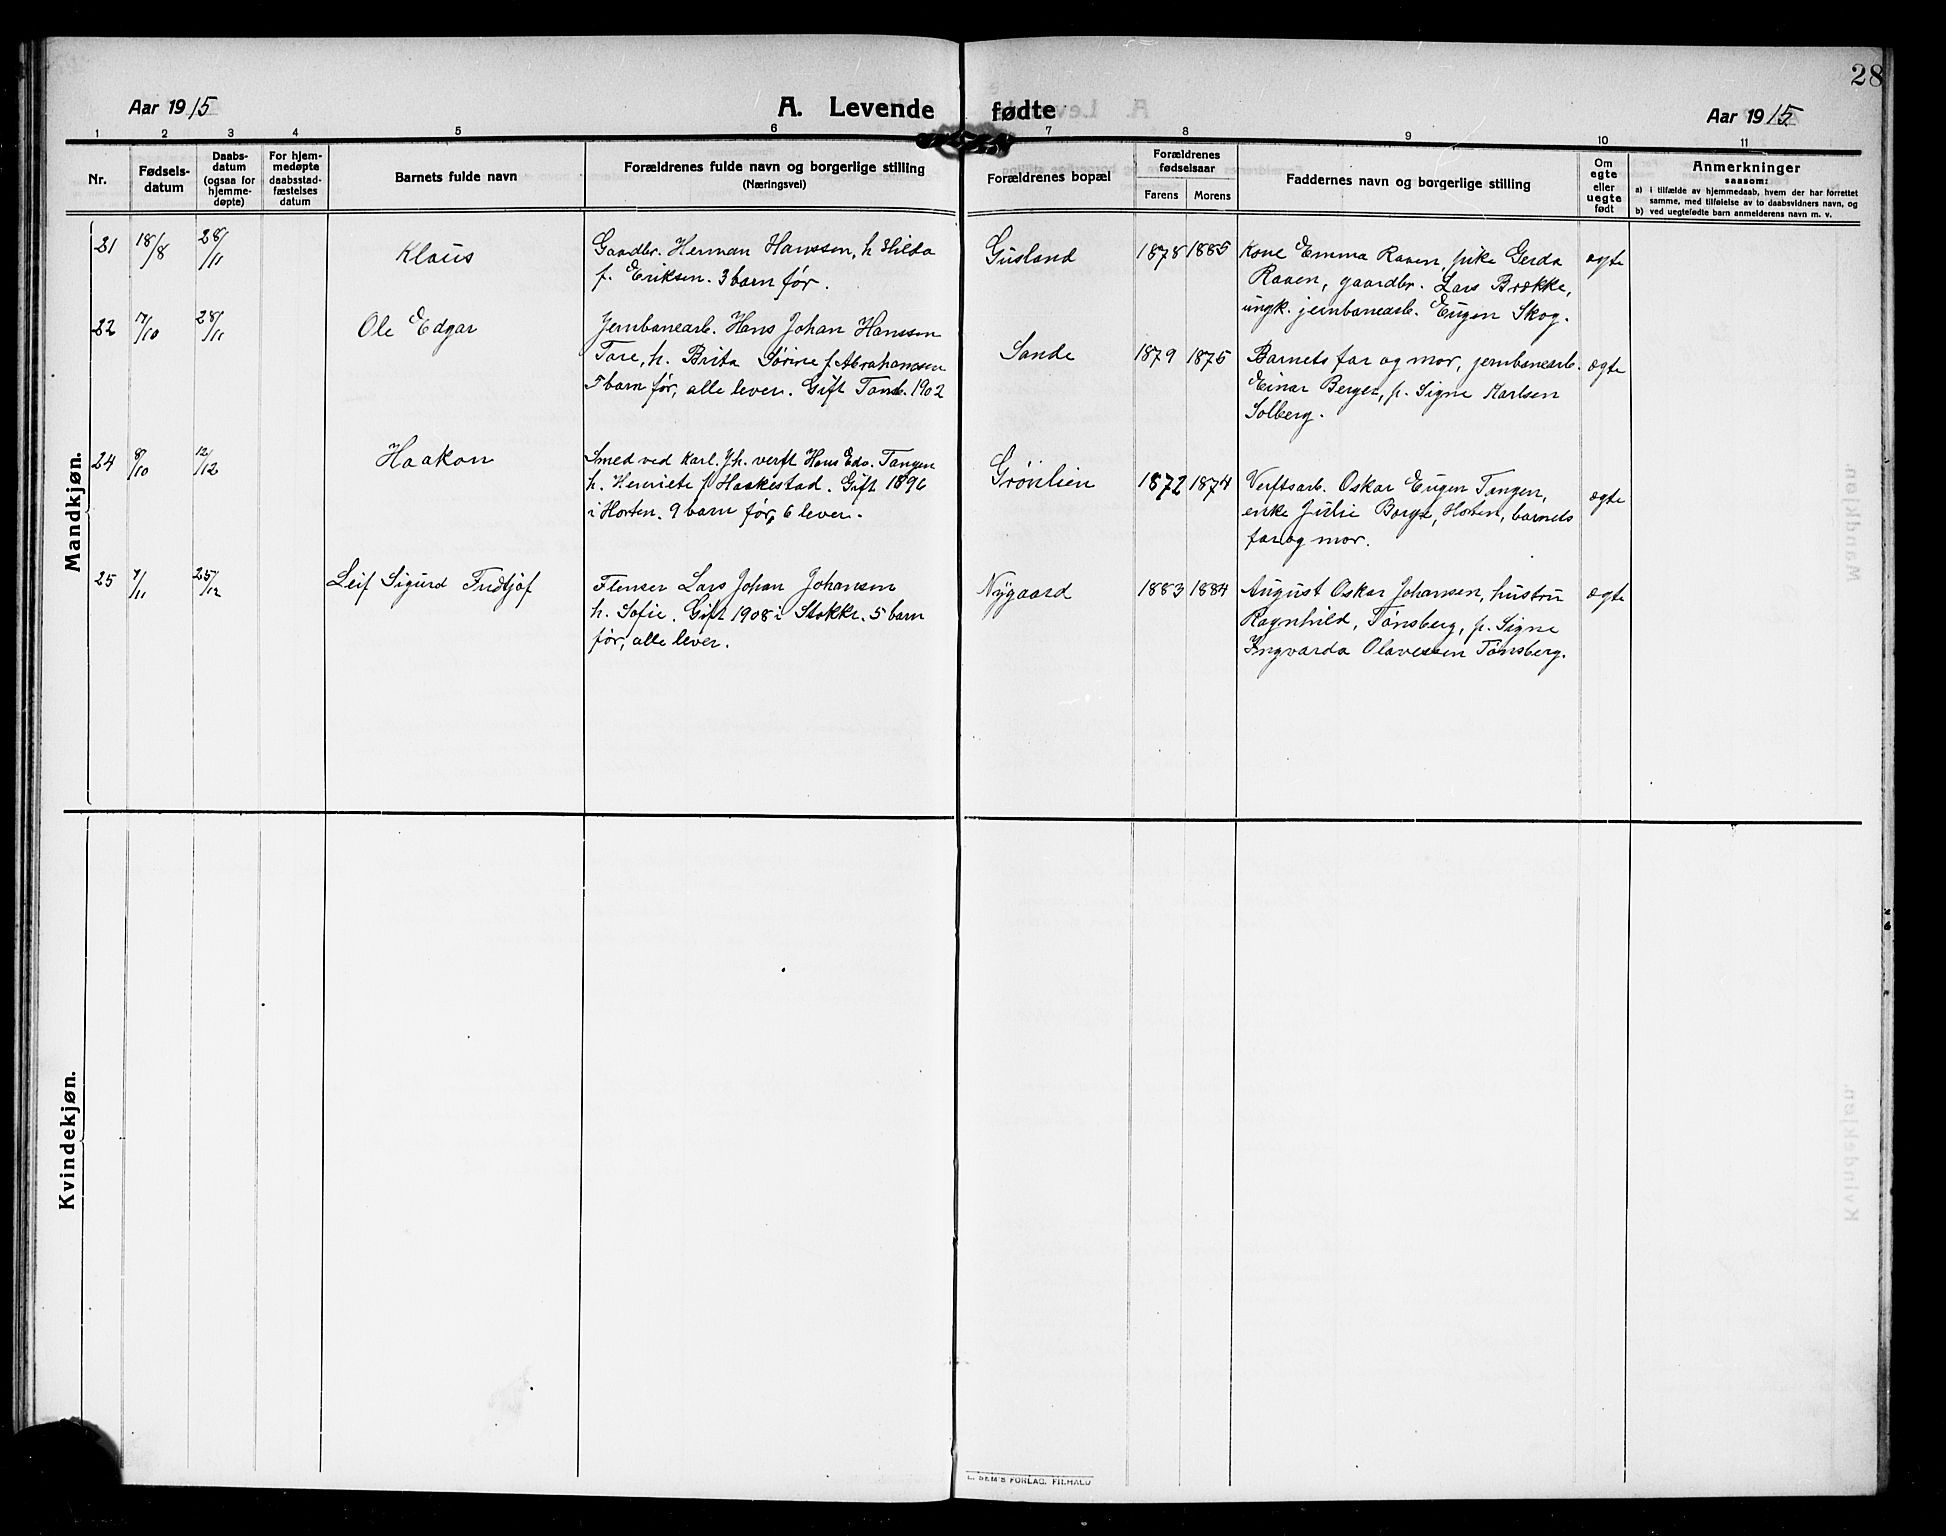 28
Aar 1915
A. Levende fødte
Aar 1915
1 2 3 4 5 6 7 8 9 10 11
Nr.
Fødsels-
datum
Daabs-
datum
(ogsaa for
hjemme-
døpte)
For hjem-
medøpte
daabsstad-
fæstelses
datum
Barnets fulde navn
Forældrenes fulde navn og borgerlige stilling
(Næringsvei)
Forældrenes bopæl
Forældrenes
fødselsaar
Farens Morens
Faddernes navn og borgerlige stilling
Om
egte
eller
uegte
født
Anmerkninger
saasom:
a) i tilfælde av hjemmedaab, hvem der har forrettet
samme, med tilføielse av to daabsvidners navn, og
b) ved uegtefødte barn anmelderens navn m. v.
Mandkjøn.
21 18/8 28/11 Klaus
Gaardbr. Herman Hanssen, h Hilda
f. Eriksen. 3 barn før.
Gusland 1878 1885
Kone Emma Raaen, pike Gerda
Raaen, gaardbr. Lars Brække,
ungk. jernbanearb. Eugen Skog.
egte
22 17/10 28/11 Ole Edgar
Jernbanearb. Hans Johan Hanssen
Tare, h. Brita Sørine f. Abrahamsen
5 barn før, alle lever. Gift Tand. 1902
Sande 1879 1875
Barnets far og mor, jernbanearb.
Einar Berger, p. Signe Karlsen
Solberg.
egte
24 8/10 12/12 Haakon
Smed ved Karl. Jh. verft Hans Edv. Tangen
h. Henriete f Haakestad. Gift 1896
i Horten. 9 barn før, 6 lever.
Grønlien 1872 1874
Verftsarb. Oskar Eugen Tangen,
enke Julie Borge, Horten, barnets
far og mor.
egte
25 7/11 25/12 Leif Sigurd Fridtjof
Flenser Lars Johan Johansen
h. Sofie. Gift 1908 i Stokke. 5 barn
før, alle lever.
Nygaard 1883 1884
August Oskar Johansen, hustru
Ragnhild, Tønsberg, p. Signe
Ingvarda Olavessen Tønsberg.
egte
Kvindekjøn.
E. SEM'S FORLAG. FR.HALD